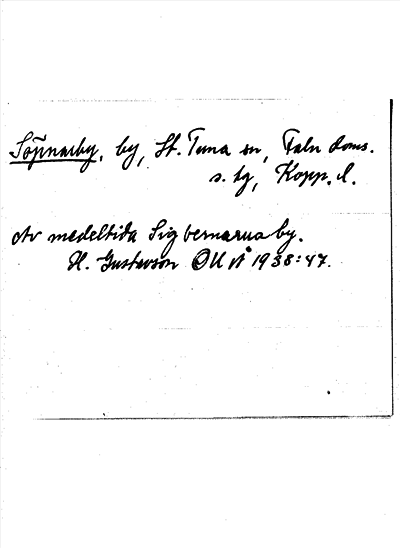 Söpnarby, by, St. Tuna sn, Falu doms.
s. tg, Kopp. l.
Av medeltida Sigbernarnaby.
H. Gustavson OUÅ 1938:47.